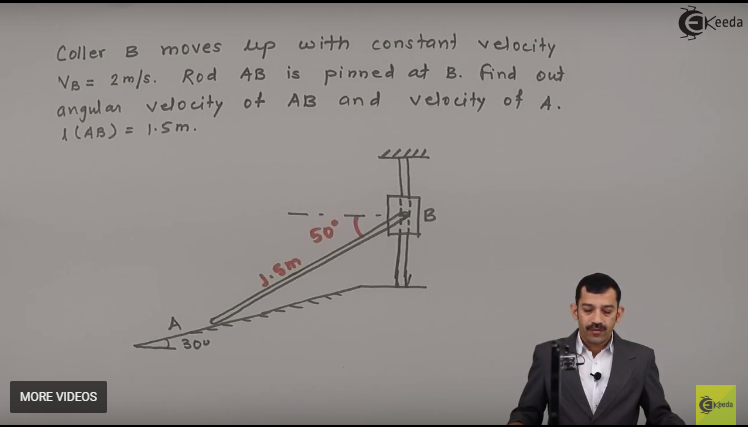 Ekeeda
Coller B moves up with constant velocity
VB = 2m/s. Rod AB is pinned at B. Find out
angular velocity of AB and velocity of A.
l(AB) = 1.5m.
B
50°
1.5m
A
30°
MORE VIDEOS
Ekeeda